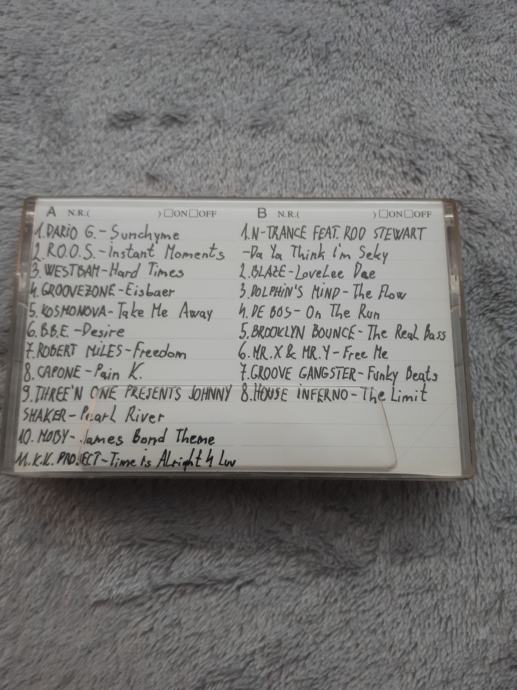 A N.R.( ) □ON□OFF
1. DARIO G. - Sunchyme
2. R.O.O.S. - Instant Moments
3. WESTBAM - Hard Times
4. GROOVEZONE - Eisbaer
5. KOSMONOVA - Take Me Away
6. B.B.E. - Desire
7. ROBERT MILES - Freedom
8. CAPONE - Pain K.
9. THREE'N ONE PRESENTS JOHNNY
SHAKER - Pearl River
10. MOBY - James Bond Theme
11. K.K. PROJECT - Time is Alright 4 Luv
B N.R.( ) □ON□OFF
1. N-TRANCE FEAT. ROD STEWART
- Da Ya Think I'm Seky
2. BLAZE - LoveLee Dae
3. DOLPHIN'S MIND - The Flow
4. DE BOS - On The Run
5. BROOKLYN BOUNCE - The Real Bass
6. MR. X & MR. Y - Free Me
7. GROOVE GANGSTER - Funky Beats
8. HOUSE INFERNO - The Limit